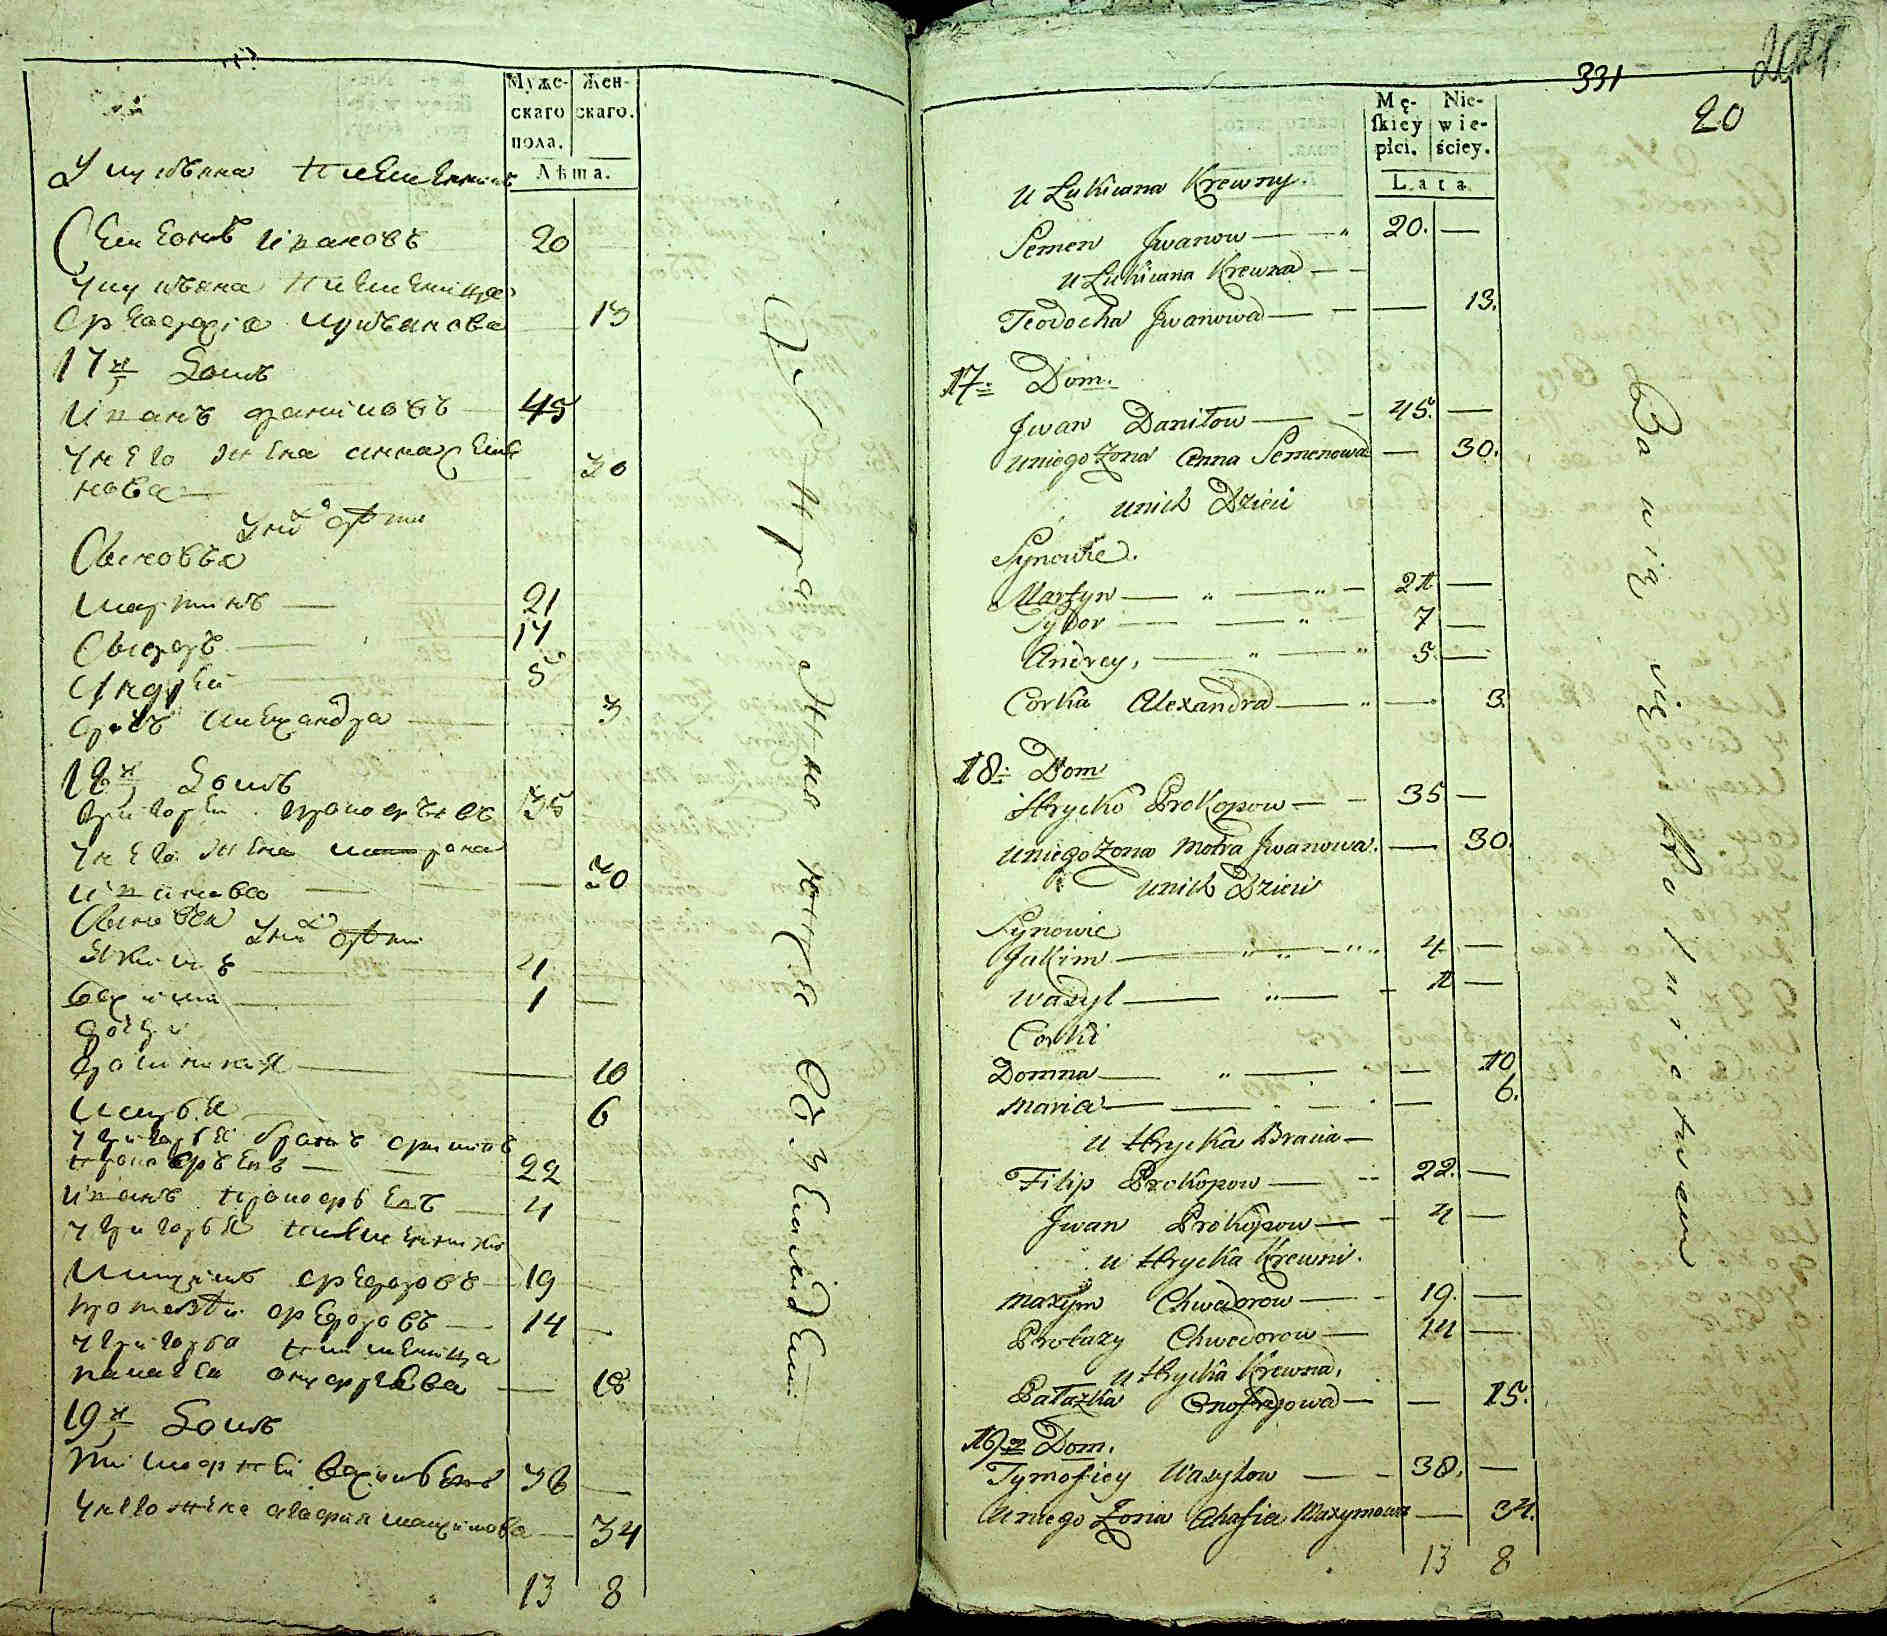 Муже-
скаго
пола.
Жен-
скаго.
Лѣта.
Симеонъ Ивановъ 20
13
17й Домъ
Иванъ Даниловъ 45
У него жена Анна Семе
нова 30
У нихъ дѣти
Сыновья
Мартинъ 21
Сидоръ 17
Андрей 5
Дочь Александра 3
18й Домъ
Григорей Прокофьевъ 35
У него жена Матрона
Иванова 30
Сыновья У нихъ дѣти
Якимъ 4
Василій 1
Дочери
Домникия 10
Марья 6
У Григорья братъ Филипъ
Прокофьевъ 22
Иванъ Прокофьевъ 4
У Григорья племянники
Максимъ Федоровъ 19
Протасей Федоровъ 14
У Григорья племянница
Палагея Онуфріева 18
19й Домъ
Тимофей Васильевъ 38
У него жена Агафия Максимова 34
13 8
331
20
Mę-
skiey
płci.
Nie-
wie-
ściey.
Lata
u Łukiana Krewny.
Semen Jwanow 20.
u Łukiana Krewna
Teodocha Jwanowa 13.
17. Dom.
Jwan Daniłow 45.
u niego Żona Anna Semenowa 30.
u nich Dzieci
Synowie.
Martyn 21
Sydor 7
Andrey, 5.
Corka Alexandra 3
18. Dom
Hrycko Prokopow 35
u niego Żona Motra Jwanowa. 30.
u nich Dzieci
Synowie
Jakim 4
Wasyl 1
Corki
Domna 10
Maria 6.
u Hrycka Bracia
Filip Prokopow 22.
Jwan Prokopow 4
u Hrycka Krewni.
Maxym Chwedorow 19.
Protazy Chwedorow 14
u Hrycka Krewna,
Pałazka Onofryowa 15.
19 Dom.
Tymofiey Wasylow 38.
u niego Żona Ahafia Maxymowa 34.
13 8
Bawią się Rolnictwem